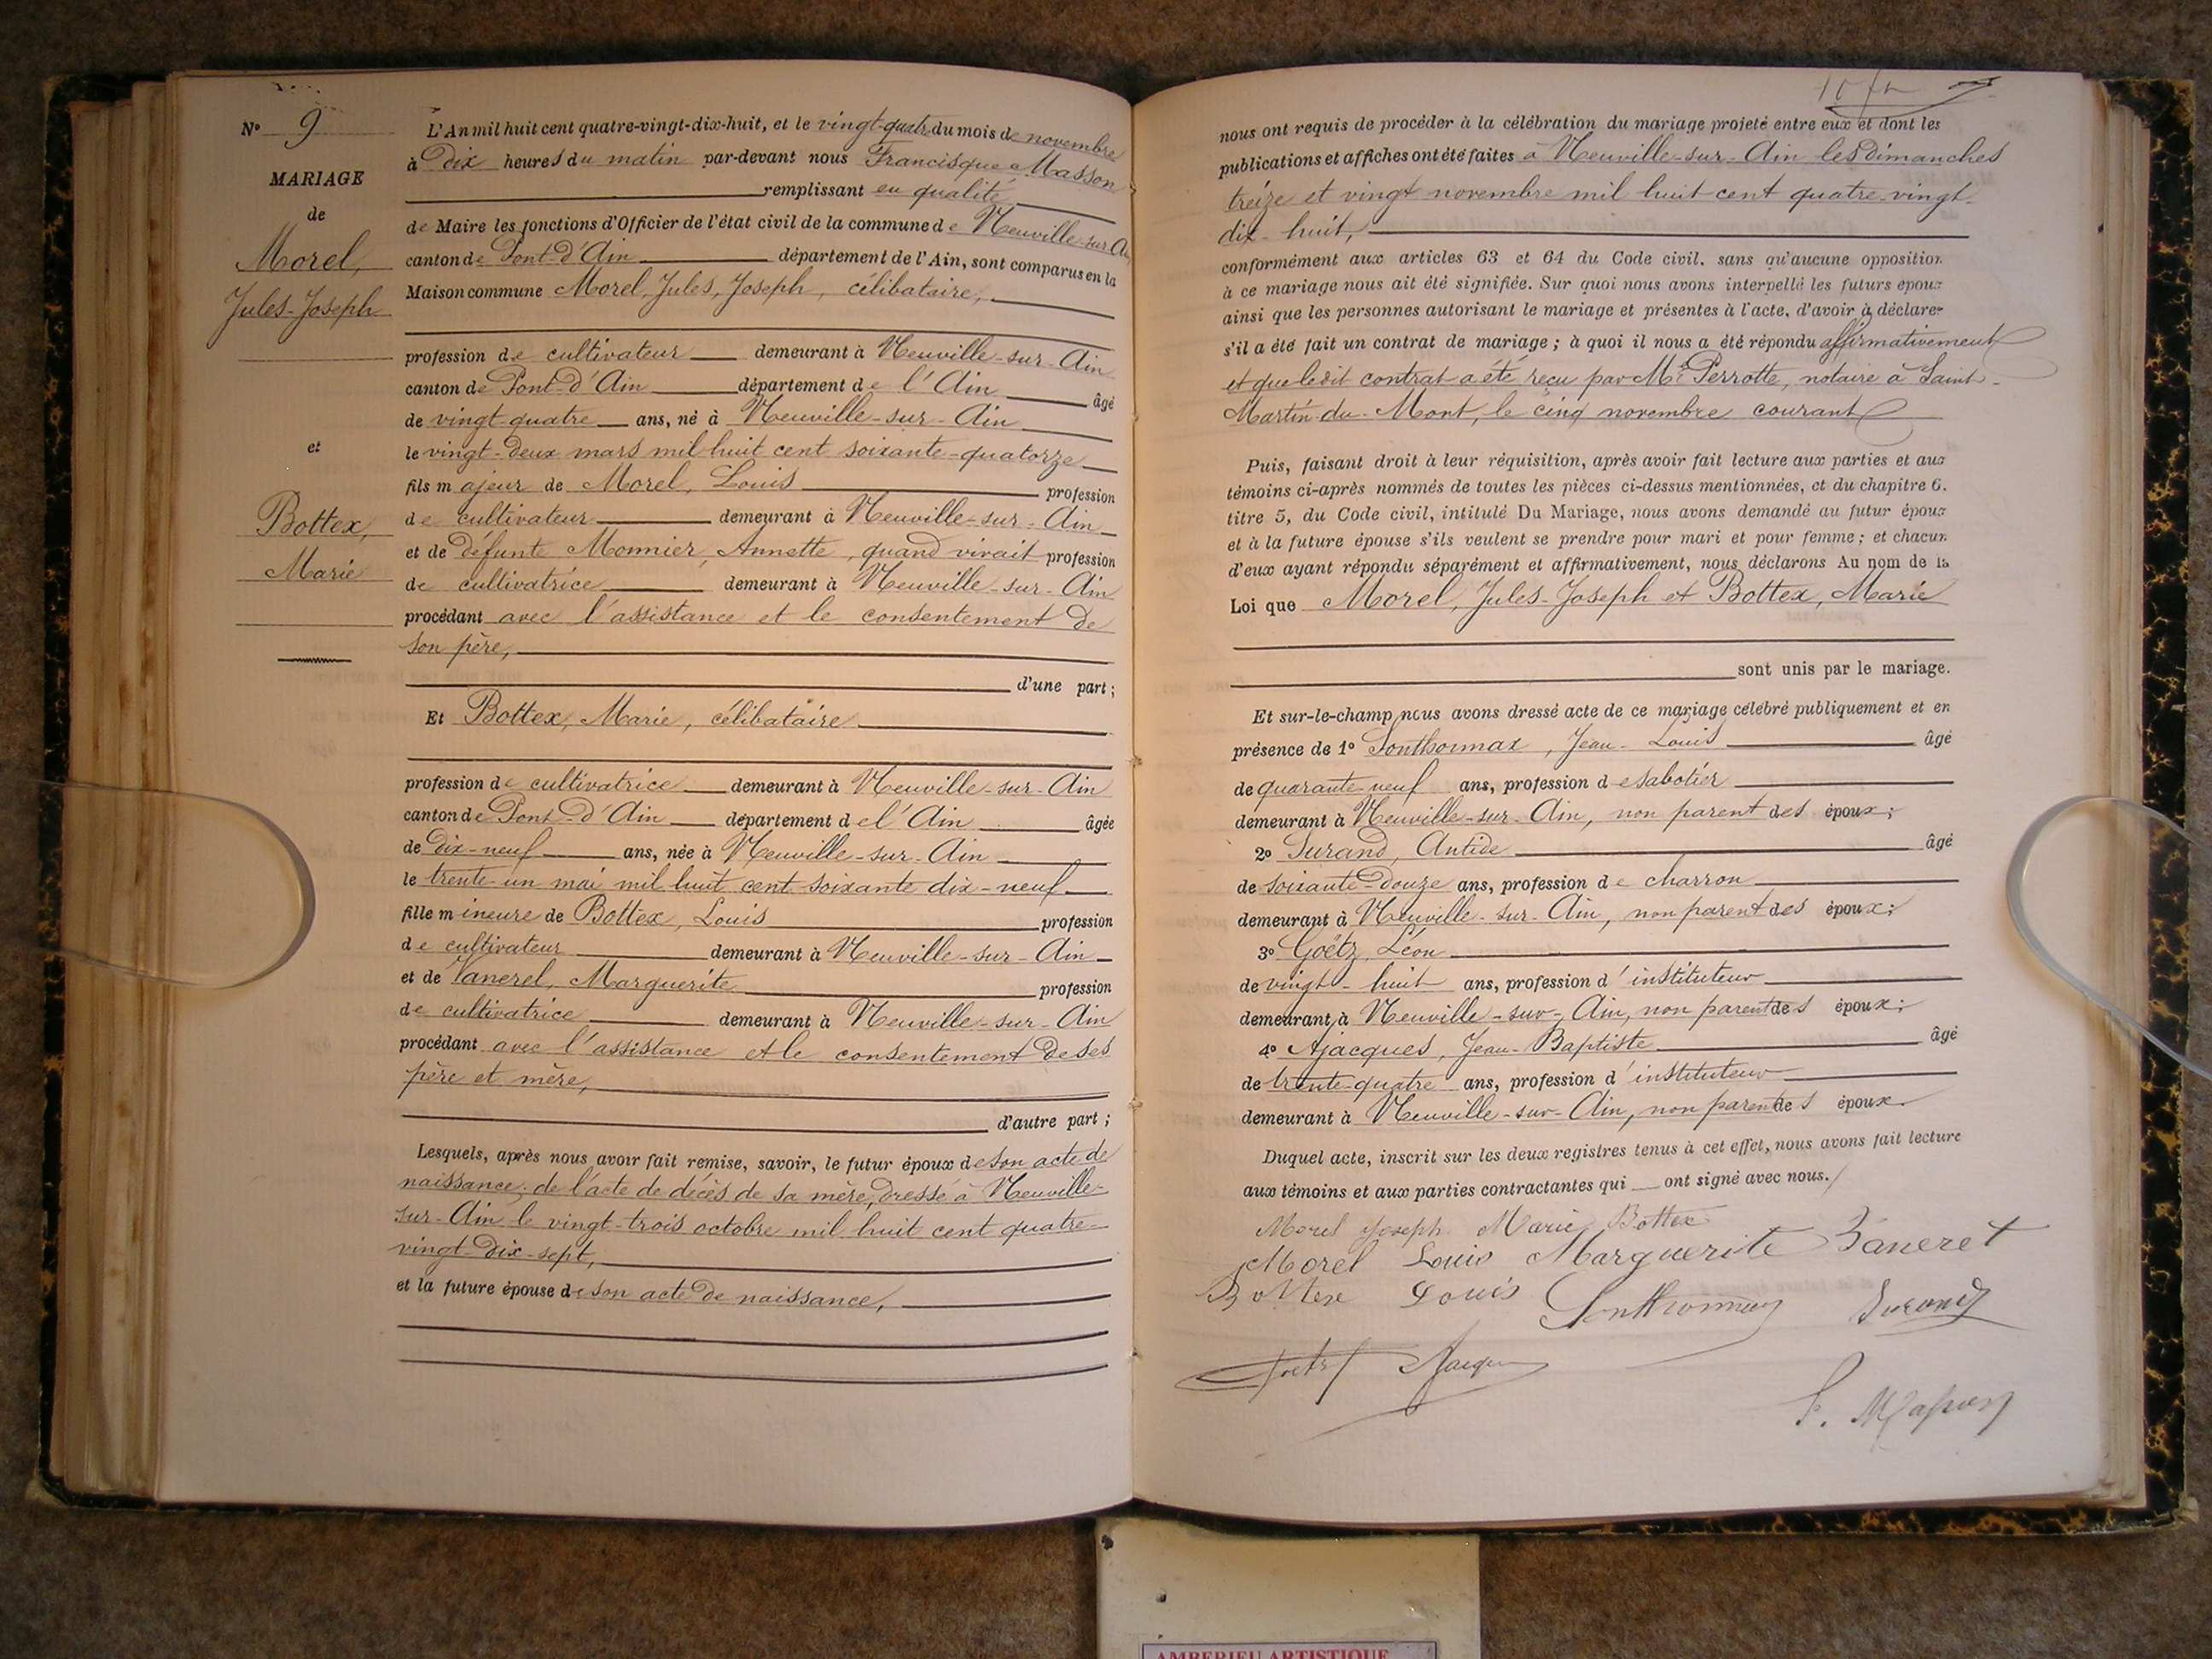 N° 9
MARIAGE
de
Morel,
Jules-Joseph
et
Bottex,
Marie
L'An mil huit cent quatre-vingt-dix-huit, et le vingt-quatre du mois de novembre
à dix heures du matin par-devant nous Francisque Masson
remplissant en qualité
de Maire les fonctions d'Officier de l'état civil de la commune de Neuville-sur-Ain
canton de Pont-d'Ain département de l'Ain, sont comparus en la
Maison commune Morel, Jules, Joseph, célibataire,
profession de cultivateur demeurant à Neuville-sur-Ain
canton de Pont-d'Ain département de l'Ain âgé
de vingt-quatre ans, né à Neuville-sur-Ain
le vingt-deux mars mil huit cent soixante-quatorze
fils majeur de Morel, Louis profession
de cultivateur demeurant à Neuville-sur-Ain
et de défunte Monnier, Annette, quand vivait profession
de cultivatrice demeurant à Neuville-sur-Ain
procédant avec l'assistance et le consentement de
son père,
d'une part;
Et Bottex, Marie, célibataire
profession de cultivatrice demeurant à Neuville-sur-Ain
canton de Pont-d'Ain département de l'Ain âgée
de dix-neuf ans, née à Neuville-sur-Ain
le trente-un mai mil huit cent soixante dix-neuf
fille mineure de Bottex, Louis profession
de cultivateur demeurant à Neuville-sur-Ain
et de Vanerel, Marguerite profession
de cultivatrice demeurant à Neuville-sur-Ain
procédant avec l'assistance et le consentement de ses
père et mère,
d'autre part;
Lesquels, après nous avoir fait remise, savoir, le futur époux de son acte de
naissance; de l'acte de décès de sa mère, dressé à Neuville-
sur-Ain le vingt-trois octobre mil huit cent quatre-
vingt-dix-sept,
et la future épouse de son acte de naissance,
nous ont requis de procéder à la célébration du mariage projeté entre eux et dont les
publications et affiches ont été faites à Neuville-sur-Ain les dimanches
treize et vingt novembre mil huit cent quatre-vingt-
dix-huit,
conformément aux articles 63 et 64 du Code civil. sans qu'aucune opposition
à ce mariage nous ait été signifiée. Sur quoi nous avons interpellé les futurs époux
ainsi que les personnes autorisant le mariage et présentes à l'acte, d'avoir à déclarer
s'il a été fait un contrat de mariage; à quoi il nous a été répondu affirmativement
et que ledit contrat a été reçu par Me Perrotte, notaire à Saint-
Martin-du-Mont, le cinq novembre courant
Puis, faisant droit à leur réquisition, après avoir fait lecture aux parties et aux
témoins ci-après nommés de toutes les pièces ci-dessus mentionnées, et du chapitre 6.
titre 5, du Code civil, intitulé Du Mariage, nous avons demandé au futur époux
et à la future épouse s'ils veulent se prendre pour mari et pour femme; et chacun
d'eux ayant répondu séparément et affirmativement, nous déclarons Au nom de la
Loi que Morel, Jules-Joseph et Bottex, Marie
sont unis par le mariage.
Et sur-le-champ nous avons dressé acte de ce mariage célébré publiquement et en
présence de 1° Sonthonnax, Jean-Louis âgé
de quarante-neuf ans, profession de sabotier
demeurant à Neuville-sur-Ain, non parent des époux;
2° Durand, Antide âgé
de soixante-douze ans, profession de charron
demeurant à Neuville-sur-Ain, non parent des époux;
3° Goëtz, Léon
de vingt-huit ans, profession d'instituteur
demeurant à Neuville-sur-Ain, non parent des époux;
4° Ajacques, Jean-Baptiste âgé
de trente-quatre ans, profession d'instituteur
demeurant à Neuville-sur-Ain, non parent des époux.
Duquel acte, inscrit sur les deux registres tenus à cet effet, nous avons fait lecture
aux témoins et aux parties contractantes qui ont signé avec nous.
Morel Joseph Marie Bottex
Morel Louis Marguerite Vaneret
Bottex Louis Sonthonnax Durand
Goetz Ajacques
F. Masson
AMBERIEU ARTISTIQUE